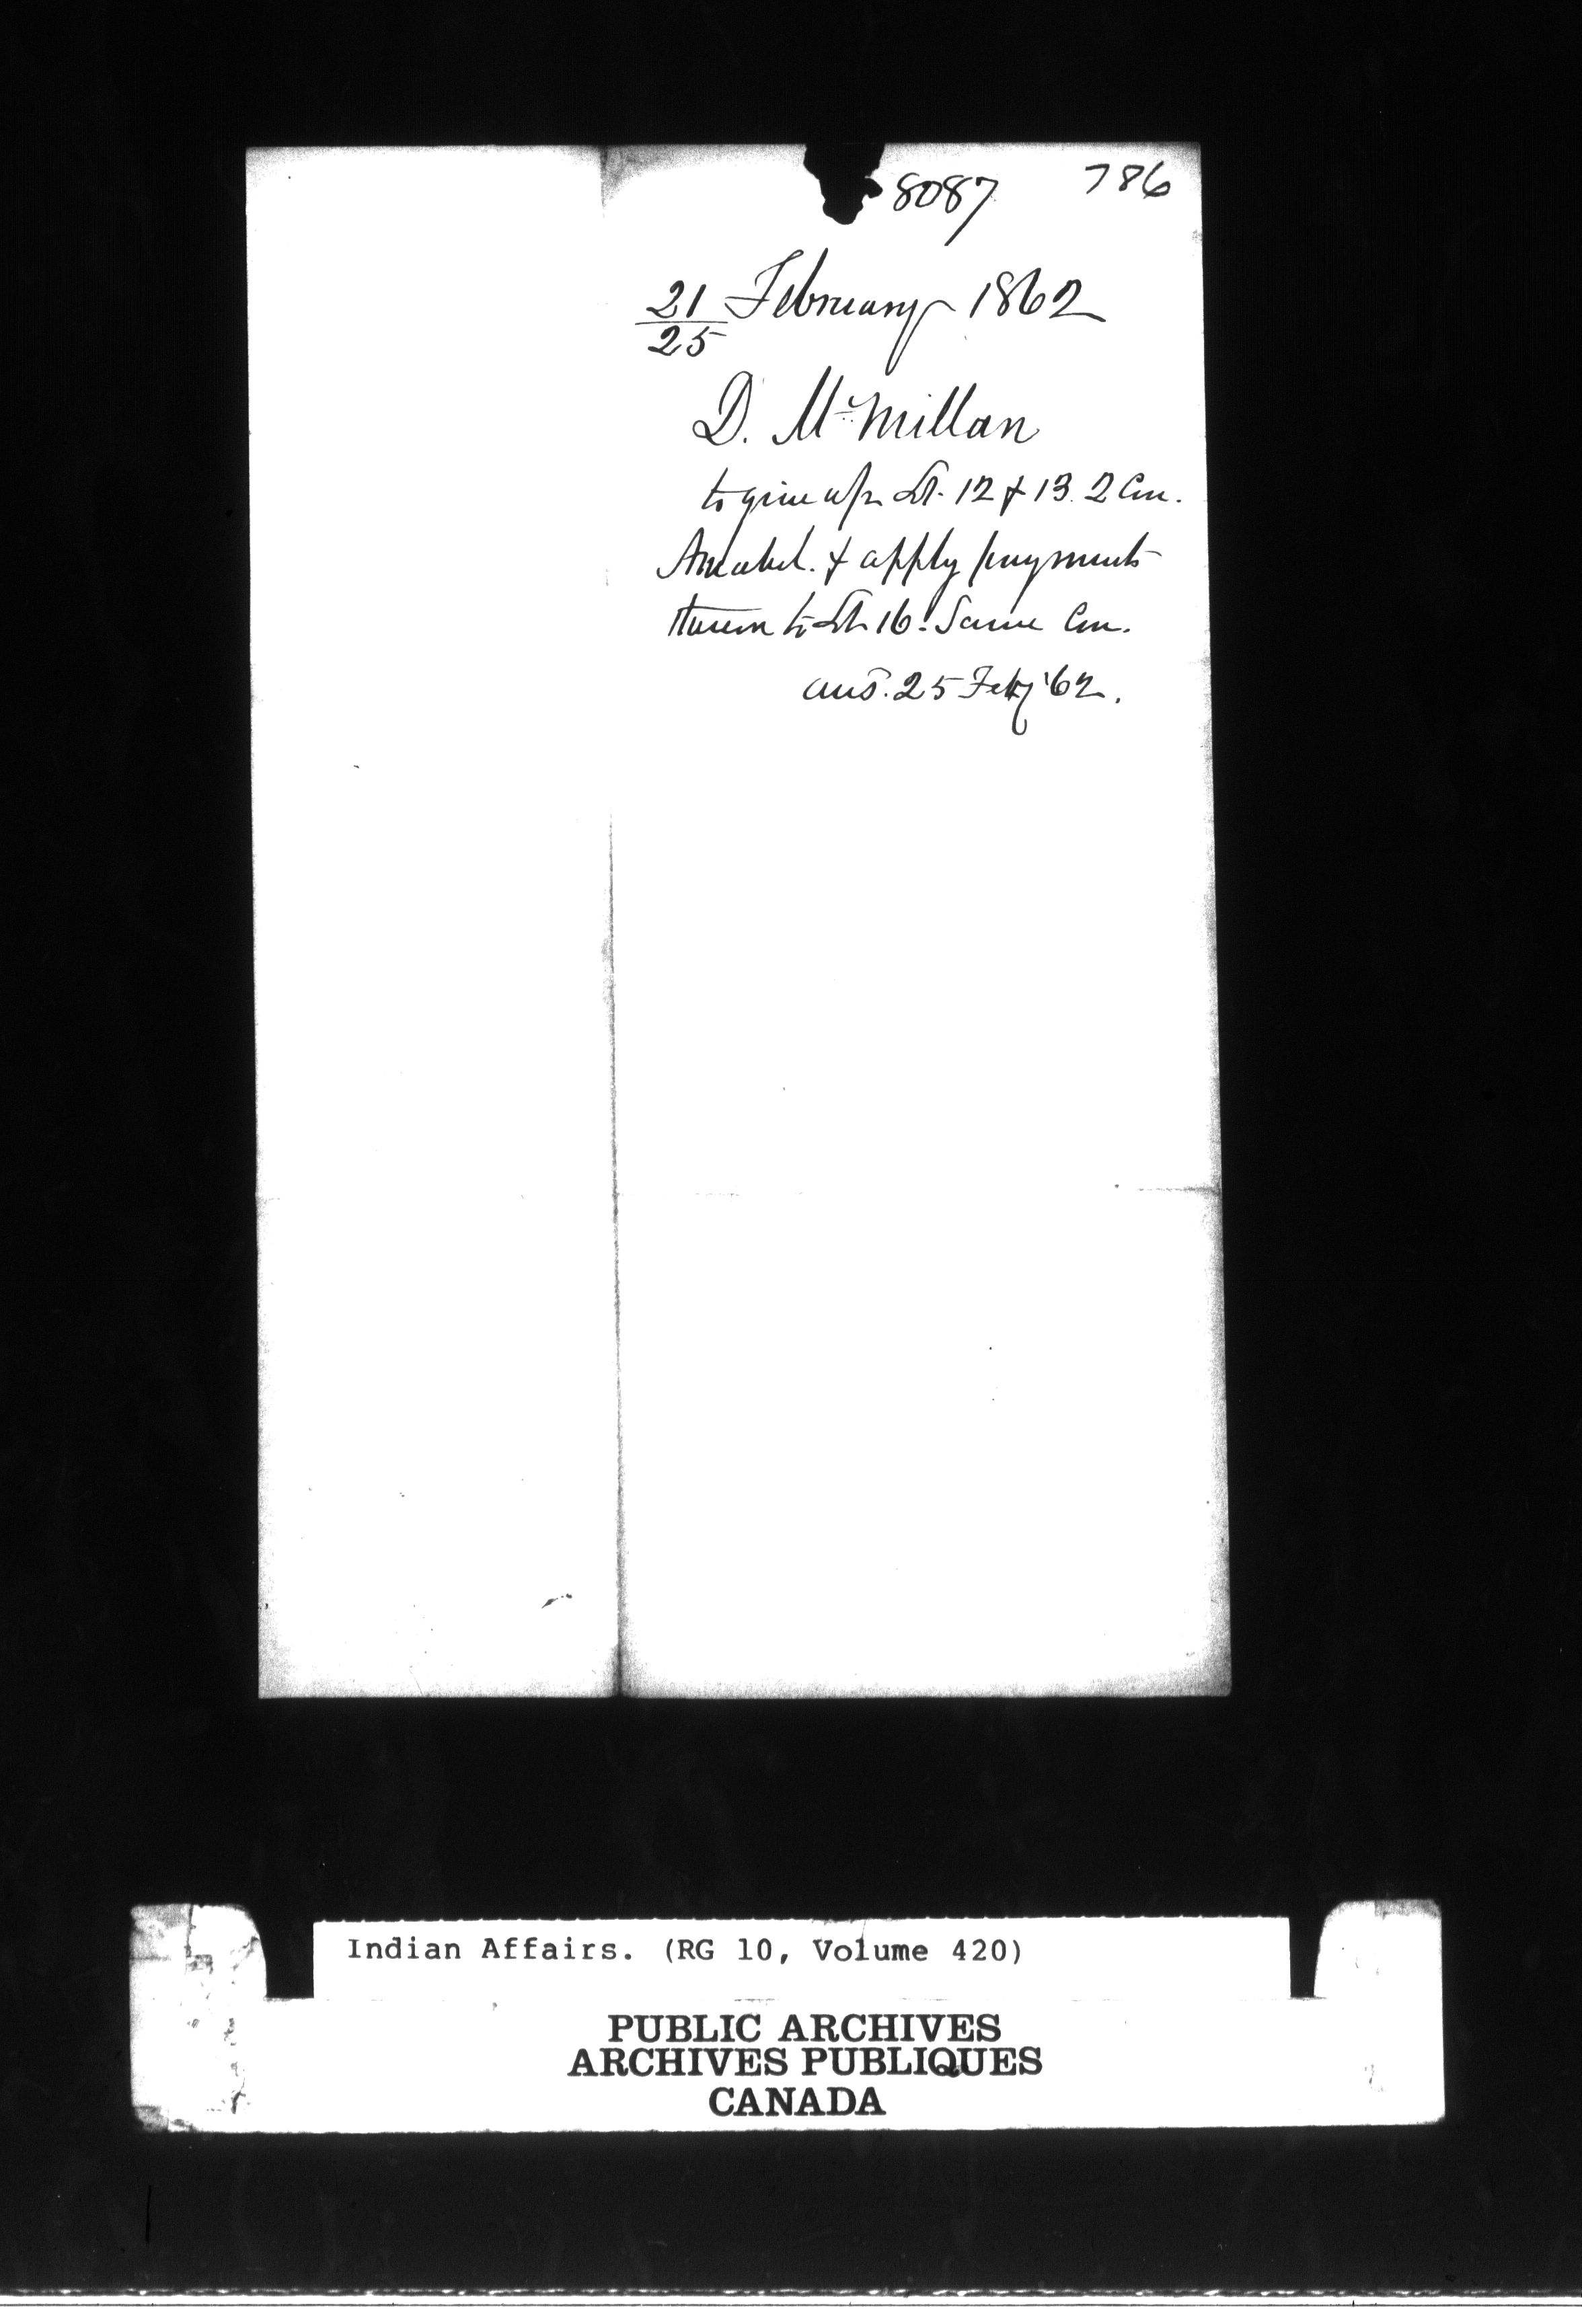 8087 786
21/25 February 1862
D. McMillan
to give up Lt. 12 & 13. 2 Con.
Amabel. & apply payments
thereon to Lt. 16. Same Con.
ans. 25 Feby '62.
Indian Affairs. (RG 10, Volume 420)
PUBLIC ARCHIVES
ARCHIVES PUBLIQUES
CANADA